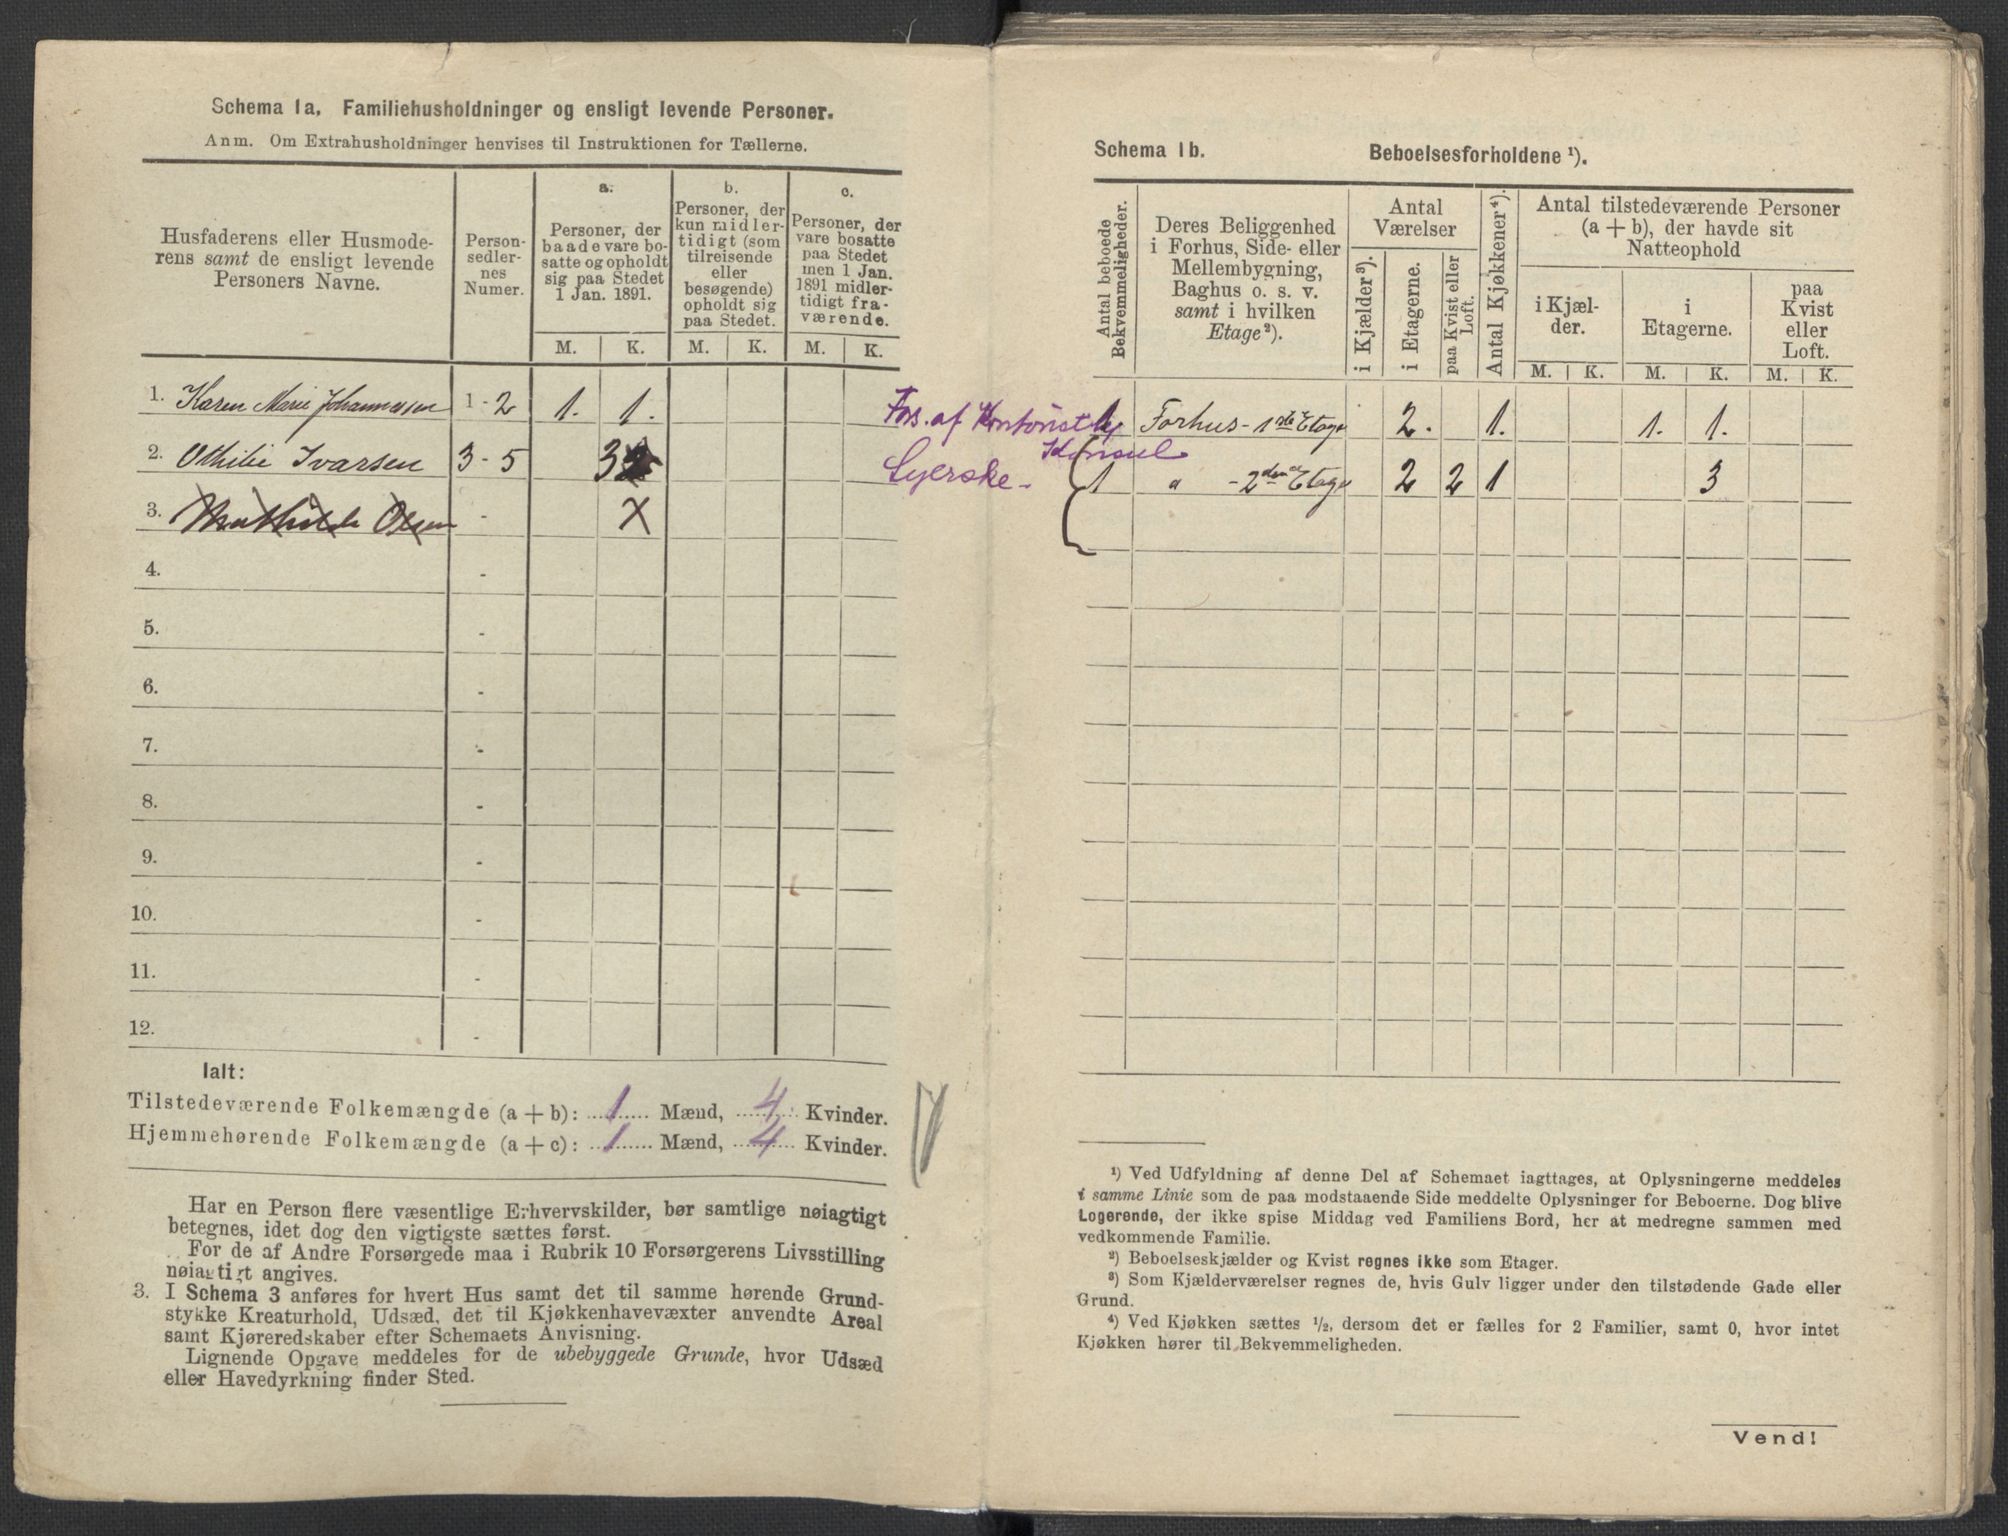 Schema 1a. Familiehusholdninger og ensligt levende Personer.
Anm. Om Extrahusholdninger henvises til Instruktionen for Tællerne.
Husfaderens eller Husmode-
rens samt de ensligt levende
Personers Navne.
Person-
sedler-
nes
Numer.
a.
Personer, der
baade vare bo-
satte og opholdt
sig paa Stedet
1 Jan. 1891.
b.
Personer, der
kun midler-
tidigt (som
tilreisende
eller
besøgende)
opholdt sig
paa Stedet.
c.
Personer, der
vare bosatte
paa Stedet
men 1 Jan.
1891 midler-
tidigt fra-
værende.
M. K. M. K. M. K.
1. Karen Marie Johannessen 1 - 2 1. 1.
2. Othilie Ivarsen 3 - 5 3
3. Mathilde Olsen - X
4. -
5. -
6. -
7. -
8. -
9. -
10. -
11. -
12. -
Ialt:
Tilstedeværende Folkemængde (a + b): 1 Mænd, 4 Kvinder.
Hjemmehørende Folkemængde (a + c): 1 Mænd, 4 Kvinder.
Har en Person flere væsentlige Erhvervskilder, bør samtlige nøiagtigt
betegnes, idet dog den vigtigste sættes først.
For de af Andre Forsørgede maa i Rubrik 10 Forsørgerens Livsstilling
nøiagtigt angives.
3. I Schema 3 anføres for hvert Hus samt det til samme hørende Grund-
stykke Kreaturhold, Udsæd, det til Kjøkkenhavevæxter anvendte Areal
samt Kjøreredskaber efter Schemaets Anvisning.
Lignende Opgave meddeles for de ubebyggede Grunde, hvor Udsæd
eller Havedyrkning finder Sted.
Schema 1b. Beboelsesforholdene ¹).
Antal beboede
Bekvemmeligheder.
Deres Beliggenhed
i Forhus, Side- eller
Mellembygning,
Baghus o. s. v.
samt i hvilken
Etage²).
Antal
Værelser
i Kjælder³).
i Etagerne.
paa Kvist eller
Loft.
Antal Kjøkkener⁴).
Antal tilstedeværende Personer
(a + b), der havde sit
Natteophold
i Kjæl-
der.
i
Etagerne.
paa
Kvist
eller
Loft.
M. K. M. K. M. K.
Fors. af Kontorist
1 Forhus - 1ste Etage 2. 1. 1. 1.
Syerske -
1 " - 2den Etage 2 2 1 3
¹) Ved Udfyldning af denne Del af Schemaet iagttages, at Oplysningerne meddeles
i samme Linie som de paa modstaaende Side meddelte Oplysninger for Beboerne. Dog blive
Logerende, der ikke spise Middag ved Familiens Bord, her at medregne sammen med
vedkommende Familie.
²) Beboelseskjælder og Kvist regnes ikke som Etager.
³) Som Kjælderværelser regnes de, hvis Gulv ligger under den tilstødende Gade eller
Grund.
⁴) Ved Kjøkken sættes ½, dersom det er fælles for 2 Familier, samt 0, hvor intet
Kjøkken hører til Bekvemmeligheden.
Vend!